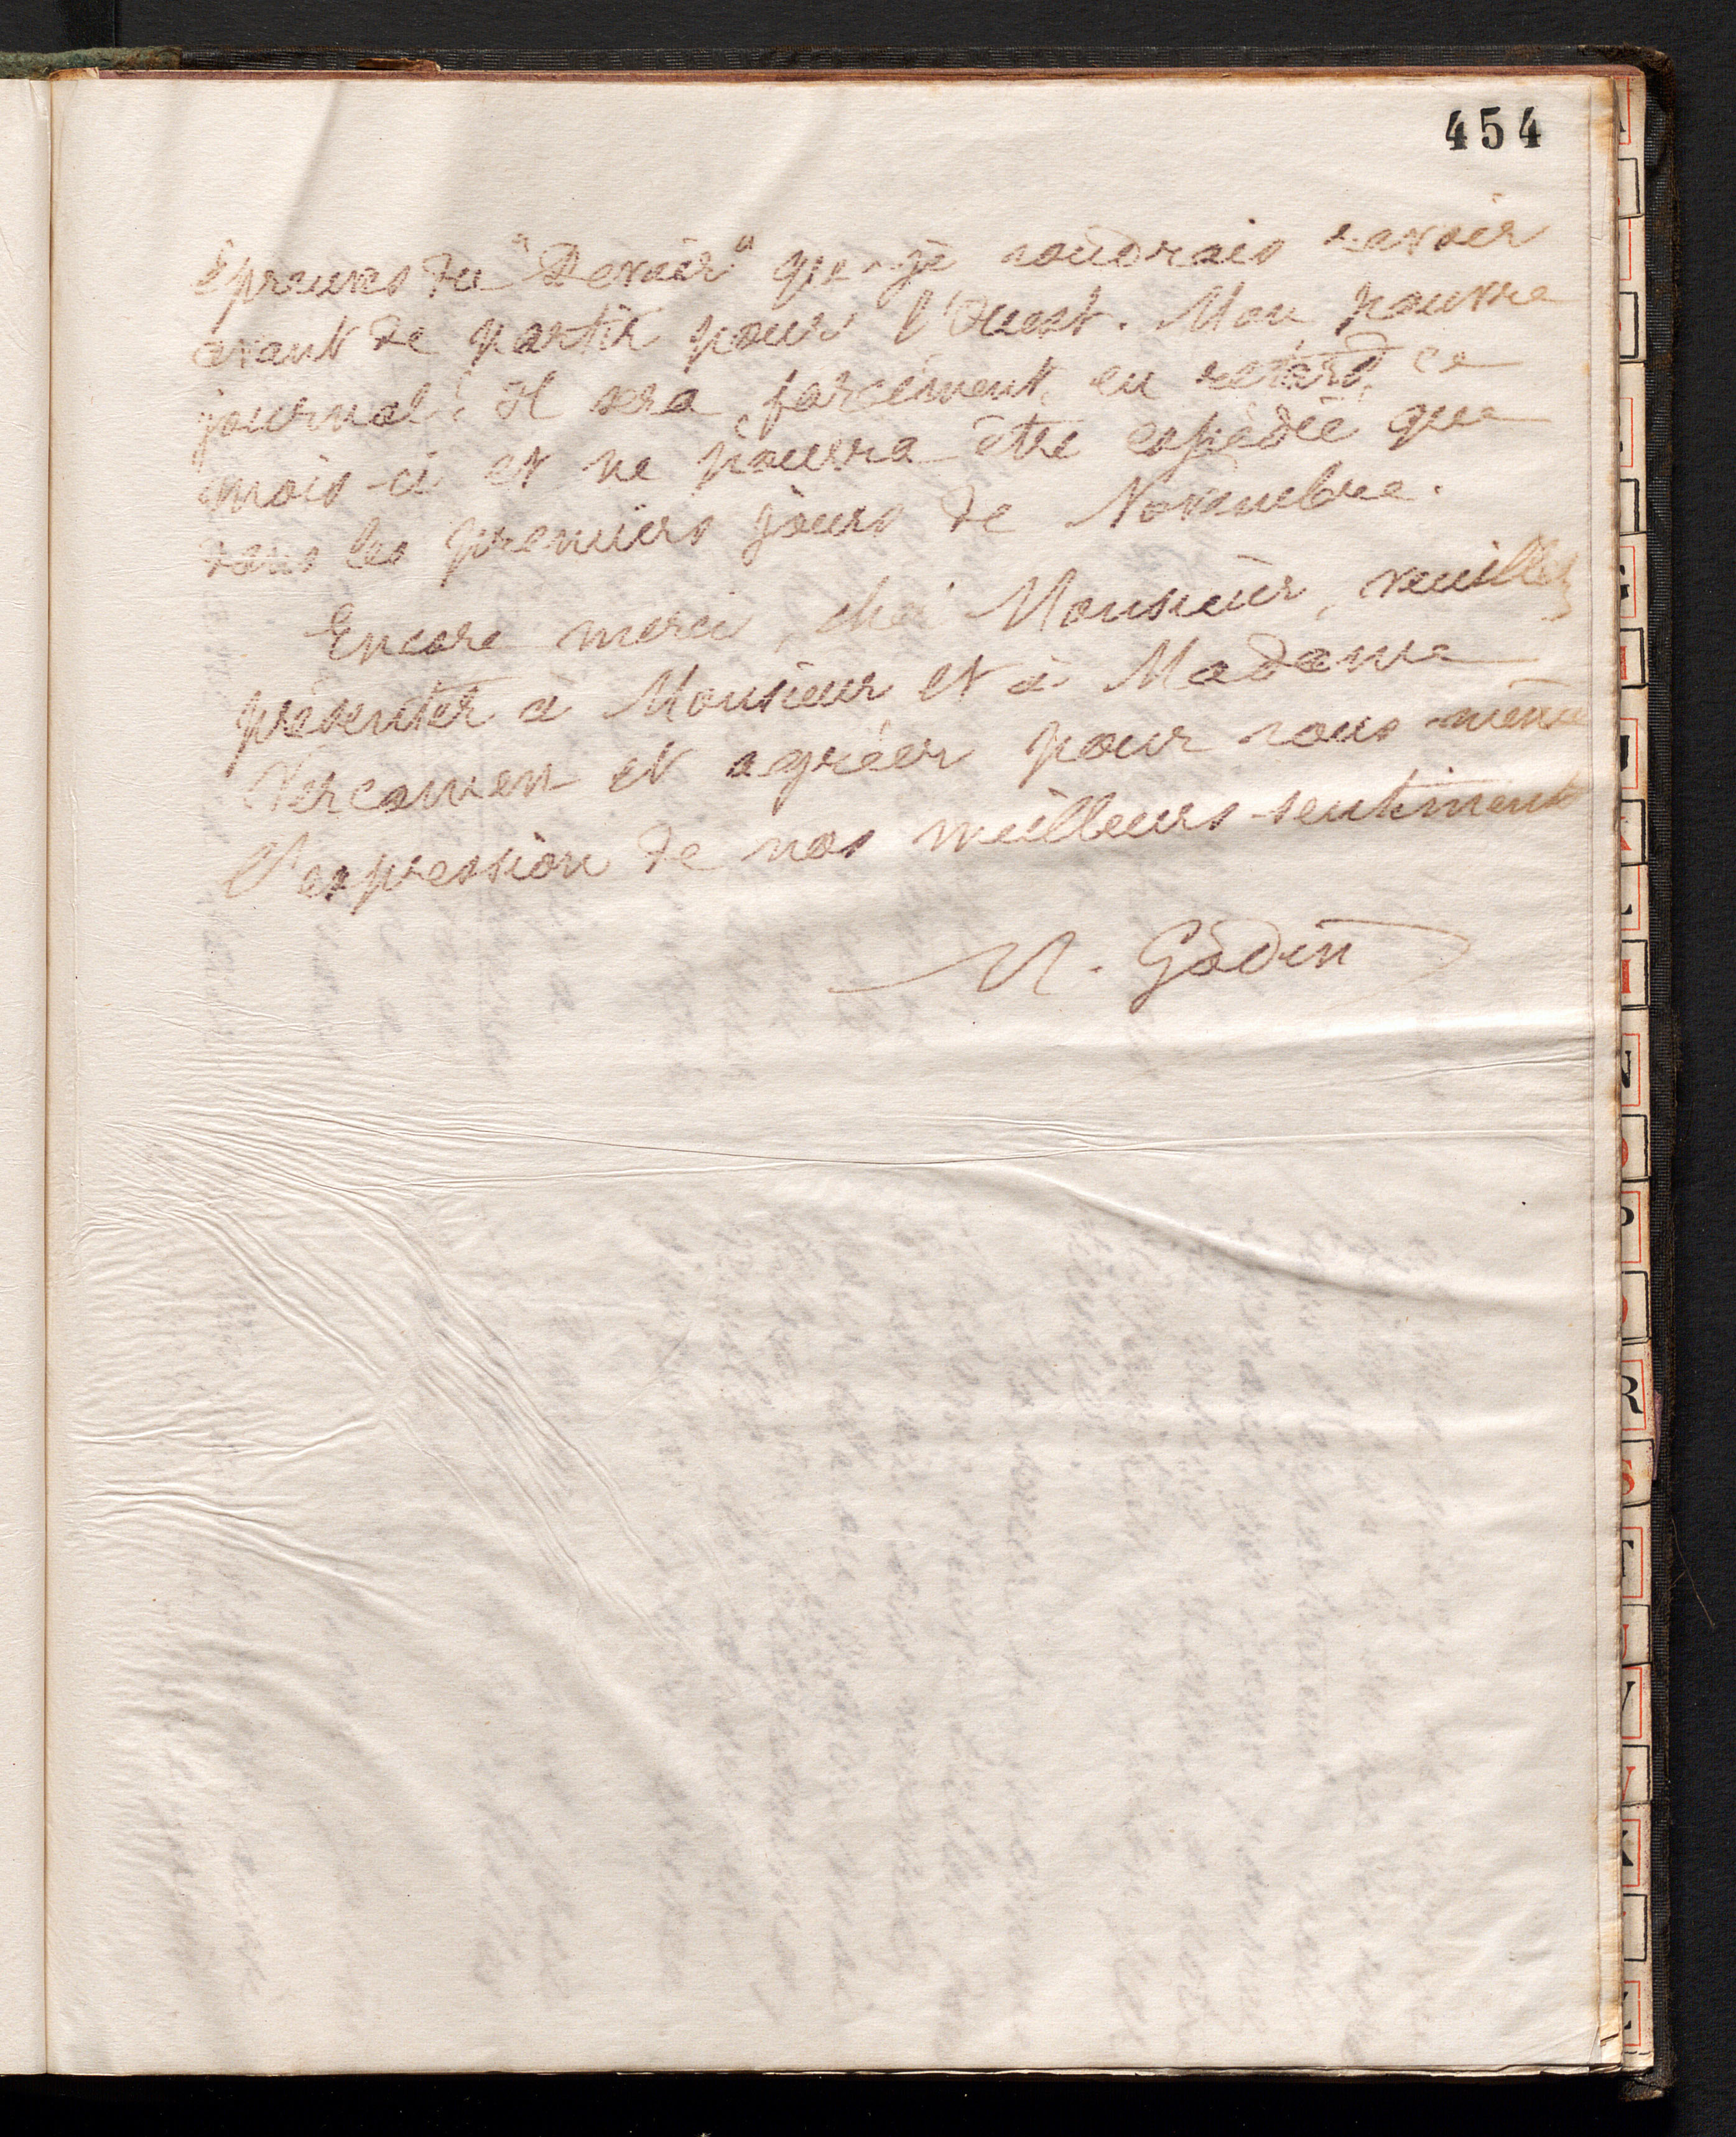 454
épreuves du "Devoir" que je voudrais ravoir
avant de partir pour l'Ouest. Mon pauvre
journal! Il sera forcément en retard, ce
mois-ci et ne pourra être expédié que
dans les premiers jours de Novembre.
Encore merci, cher Monsieur, veuillez
présenter à Monsieur et à Madame
et agréer pour vous-même
l'expression de nos meilleurs sentiments
M. Godin